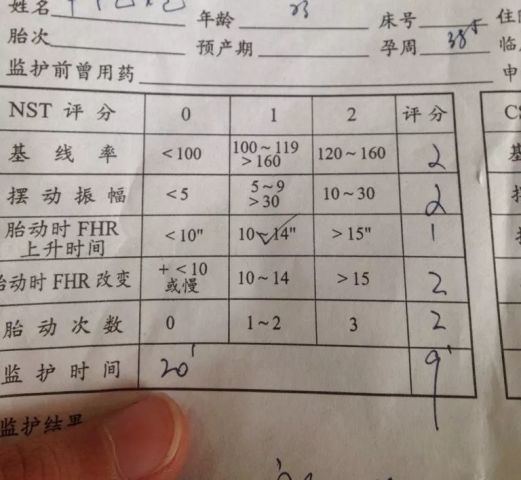 姓名 年龄 23 床号 住
胎次 预产期 孕周 38+ 临
监护前曾用药 申
NST 评分 0 1 2 评分
基线率 <100 100~119 >160 120~160 2
摆动振幅 <5 5~9 >30 10~30 2
胎动时 FHR 上升时间 <10" 10~14" >15" 1
胎动时 FHR 改变 +<10 或慢 10~14 >15 2
胎动次数 0 1~2 3 2
监护时间 20' 9'
监护结果